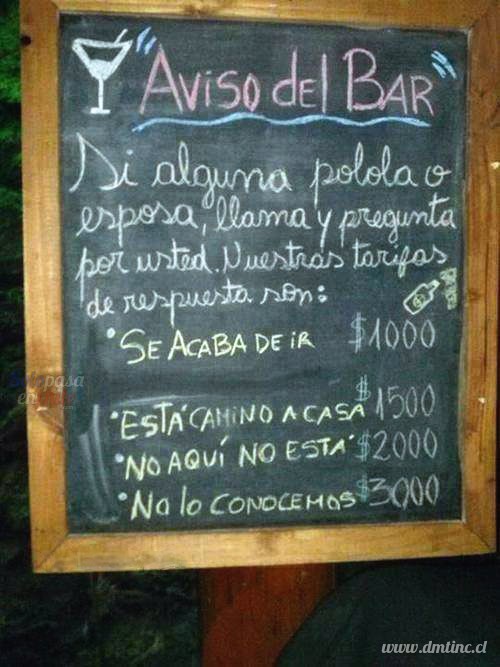 "Aviso del BAR"
Si alguna polola o
esposa, llama y pregunta
por usted. Nuestras tarifas
de respuesta son:
• SE ACABA DE IR $1000
• ESTÁ CAMINO A CASA $1500
• NO AQUÍ NO ESTÁ $2000
• No lo CONOCEMOS $3000
www.dmtinc.cl